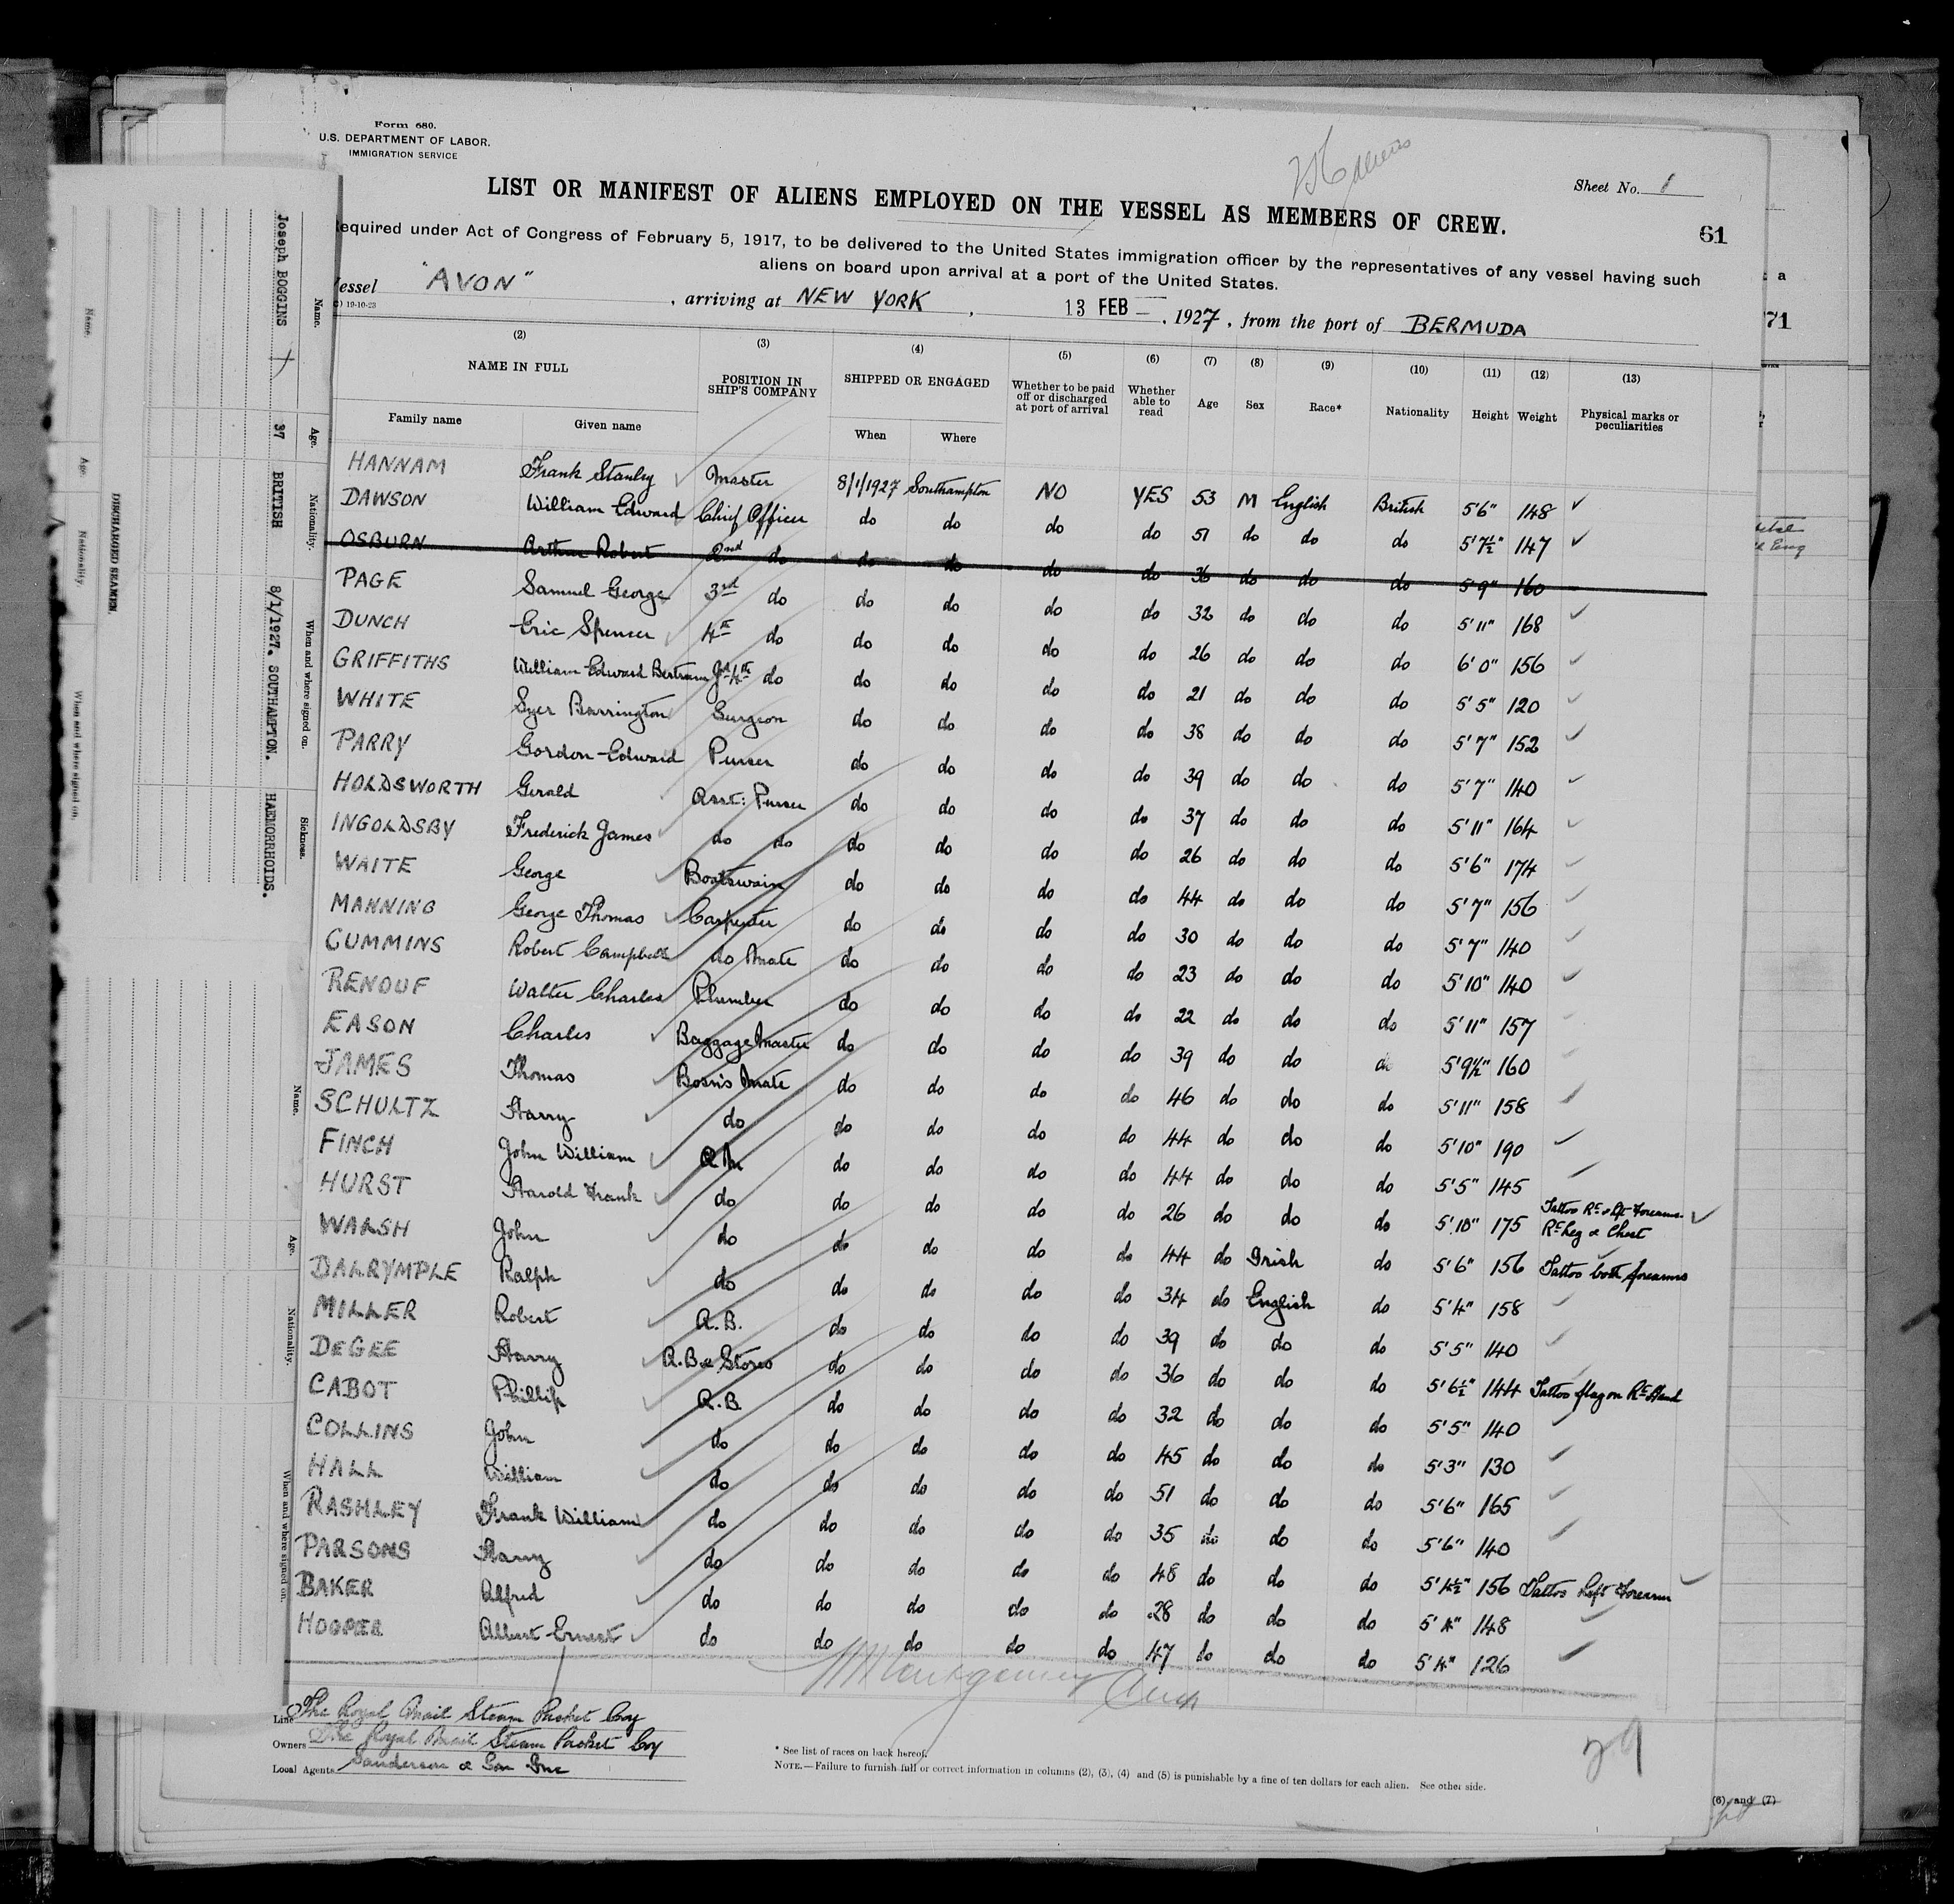 Form 680.
U.S. DEPARTMENT OF LABOR.
IMMIGRATION SERVICE
aliens
Sheet No. 1
LIST OR MANIFEST OF ALIENS EMPLOYED ON THE VESSEL AS MEMBERS OF CREW.
61
equired under Act of Congress of February 5, 1917, to be delivered to the United States immigration officer by the representatives of any vessel having such
aliens on board upon arrival at a port of the United States.
essel "AVON", arriving at NEW YORK, 13 FEB, 1927, from the port of BERMUDA
19-10-23
71
(2) (3) (4) (5) (6) (7) (8) (9) (10) (11) (12) (13)
NAME IN FULL POSITION IN SHIP'S COMPANY SHIPPED OR ENGAGED Whether to be paid off or discharged at port of arrival Whether able to read Age Sex Race* Nationality Height Weight Physical marks or peculiarities
Family name Given name When Where
HANNAM Frank Stanley Master 8/1/1927 Southampton NO YES 53 M English British 5'6" 148
DAWSON William Edward Chief Officer do do do do 51 do do do 5'7½" 147
OSBURN Arthur Robert 2nd do do do do do 36 do do do 5'9" 160
PAGE Samuel George 3rd do do do do do 32 do do do 5'11" 168
DUNCH Eric Spencer 4th do do do do do 26 do do do 6'0" 156
GRIFFITHS William Edward Bertram Jr 4th do do do do do 21 do do do 5'5" 120
WHITE Syer Barrington Surgeon do do do do 38 do do do 5'7" 152
PARRY Gordon Edward Purser do do do do 39 do do do 5'7" 140
HOLDSWORTH Gerald Asst: Purser do do do do 37 do do do 5'11" 164
INGOLDSBY Frederick James do do do do do do 26 do do do 5'6" 174
WAITE George Boatswain do do do do 44 do do do 5'7" 156
MANNING George Thomas Carpenter do do do do 30 do do do 5'7" 140
CUMMINS Robert Campbell do Mate do do do do 23 do do do 5'10" 140
RENOUF Walter Charles Plumber do do do do 22 do do do 5'11" 157
EASON Charles Baggage Master do do do do 39 do do do 5'9½" 160
JAMES Thomas Bosn's Mate do do do do 46 do do do 5'11" 158
SCHULTZ Harry do do do do do 44 do do do 5'10" 190
FINCH John William Q M do do do do 44 do do do 5'5" 145
HURST Harold Frank do do do do do 26 do do do 5'10" 175 Tattoo Rt & Lft Forearms Rt Leg & Chest
WALSH John do do do do do 44 do Irish do 5'6" 156 Tattoo both forearms
DALRYMPLE Ralph do do do do do 34 do English do 5'4" 158
MILLER Robert A.B. do do do do 39 do do do 5'5" 140
DEGEE Harry A.B & Stores do do do do 36 do do do 5'6½" 144 Tattoo flag on Rt Hand
CABOT Phillip A.B do do do do 32 do do do 5'5" 140
COLLINS John do do do do do 45 do do do 5'3" 130
HALL William do do do do do 51 do do do 5'6" 165
RASHLEY Frank William do do do do do 35 do do do 5'6" 140
PARSONS Harry do do do do do 48 do do do 5'4½" 156 Tattoo Left Forearm
BAKER Alfred do do do do do 28 do do do 5'4" 148
HOOPER Albert Ernest do do do do do 47 do do do 5'4" 126
Line The Royal Mail Steam Packet Coy
Owners The Royal Mail Steam Packet Coy
Local Agents Sanderson & Son Inc
29
* See list of races on back hereof.
NOTE.—Failure to furnish full or correct information in columns (2), (3), (4) and (5) is punishable by a fine of ten dollars for each alien. See other side.
(6) and (7)
DISCHARGED SEAMEN.
Name. Age. Nationality. When and where signed on. Sickness.
Joseph BOGGINS 37 BRITISH 8/1/1927. SOUTHAMPTON. HAEMORRHOIDS.
Name. Age. Nationality. When and where signed on.
Name. Age. Nationality. When and where signed on.